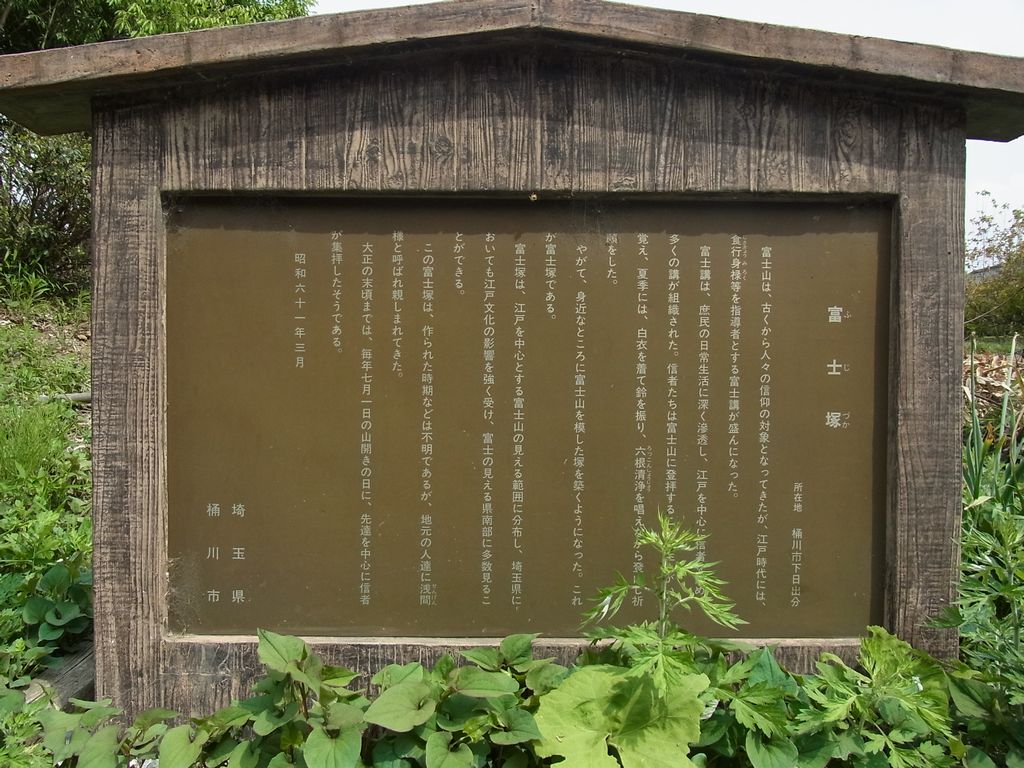 富士塚
ふじづか
所在地 桶川市下日出谷
富士山は、古くから人々の信仰の対象となってきたが、江戸時代には、
食行身禄等を指導者とする富士講が盛んになった。
じきぎょうみろく
富士講は、庶民の日常生活に深く滲透し、江戸を中心に信者
多くの講が組織された。信者たちは富士山に登拝する
覚え、夏季には、白衣を着て鈴を振り、六根清浄を唱え
ろっこんしょうじょう
願をした。
やがて、身近なところに富士山を模した塚を築くようになった。これ
が富士塚である。
富士塚は、江戸を中心とする富士山の見える範囲に分布し、埼玉県に
おいても江戸文化の影響を強く受け、富士の見える県南部に多数見るこ
とができる。
この富士塚は、作られた時期などは不明であるが、地元の人達に浅間
せんげん
様と呼ばれ親しまれてきた。
大正の末頃までは、毎年七月一日の山開きの日に、先達を中心に信者
が集拝したそうである。
昭和六十一年三月
埼玉県
桶川市